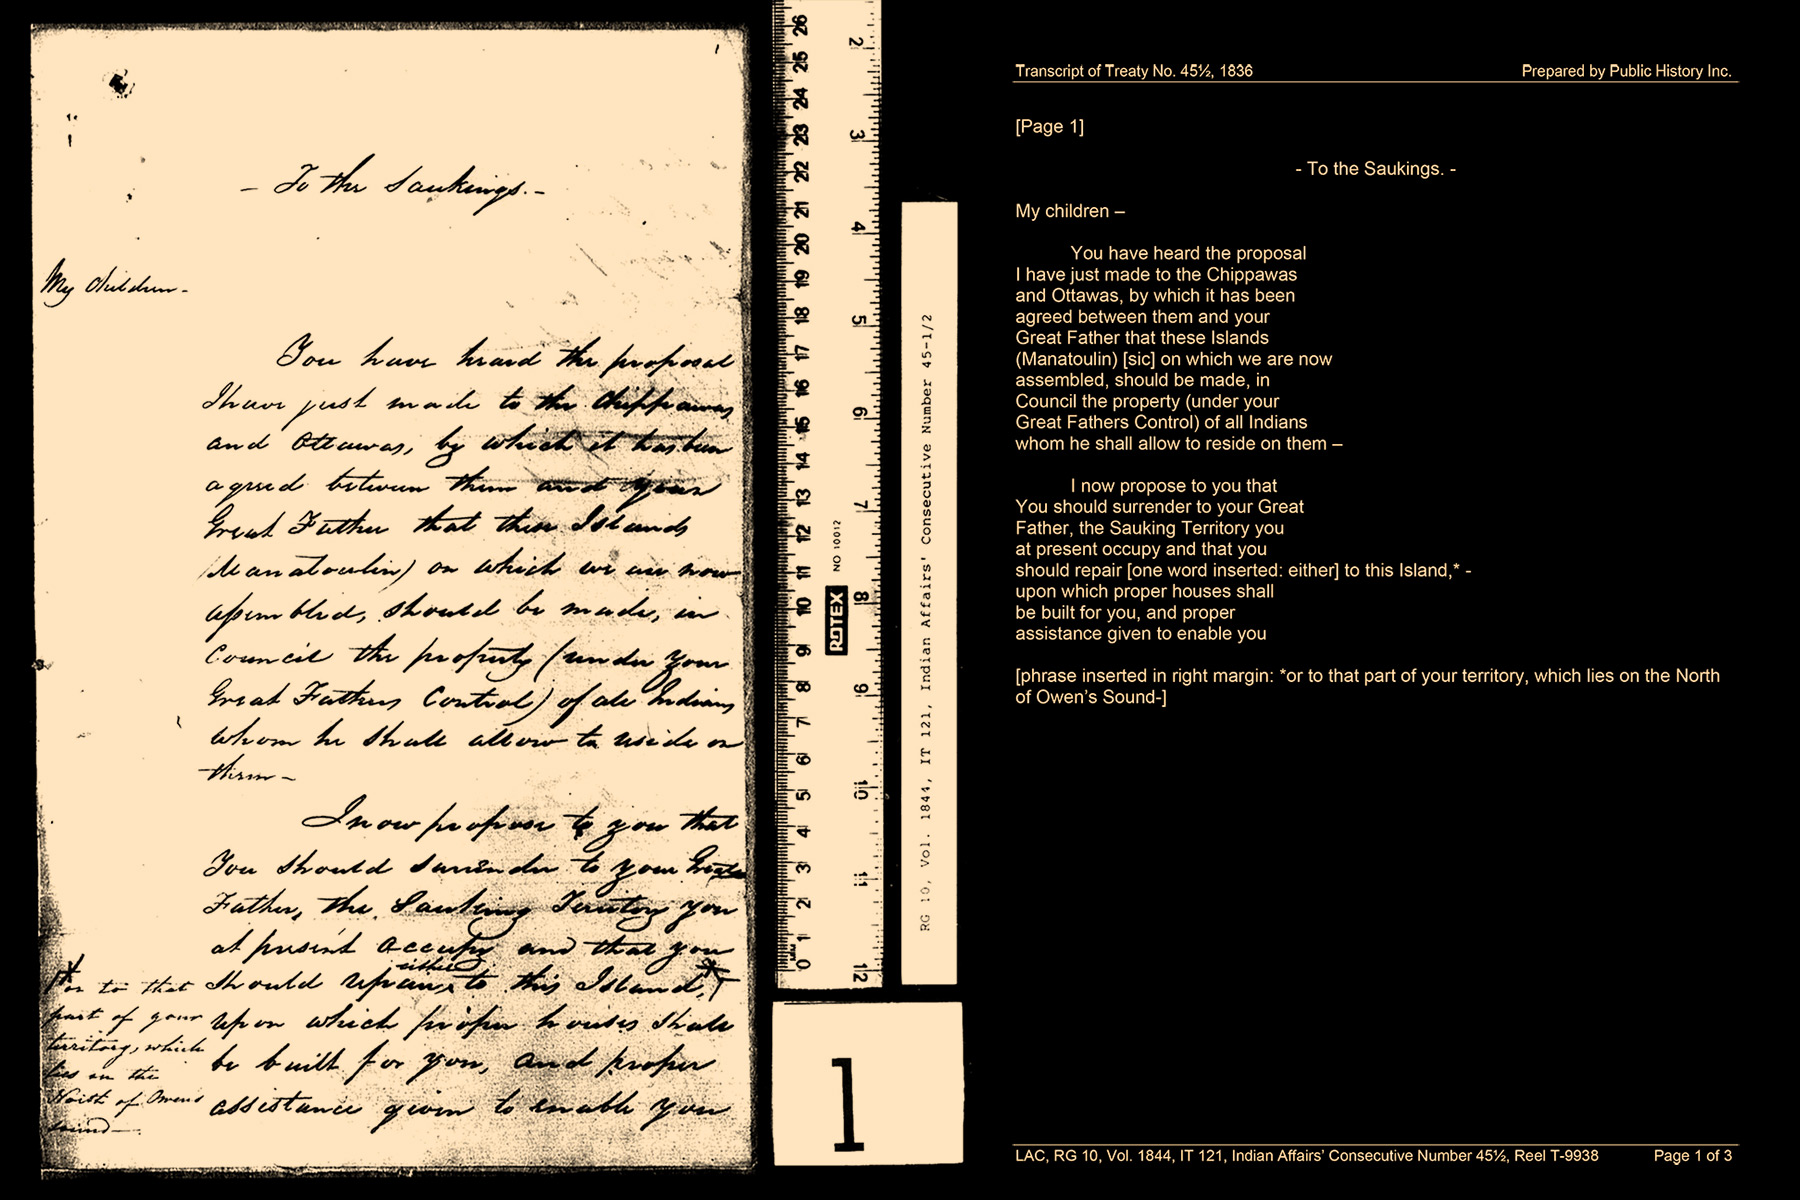 - To the Saukings. -
My Children -
You have heard the proposal
I have just made to the Chippawas
and Ottawas, by which it has been
agreed between them and your
Great Father that these Islands
(Manatoulin) on which we are now
assembled, should be made, in
Council the property (under your
Great Fathers Control) of all Indians
whom he shall allow to reside on
them -
I now propose to you that
You should surrender to your Great
Father, the Sauking Territory you
at present occupy and that you
either
should repair to this Island,*
upon which proper houses shall
be built for you, and proper
assistance given to enable you
*or to that
part of your
territory, which
lies on the
North of Owens
sound -
26 25 24 23 22 21 20 19 18 17 16 15 14 13 12 11 10 9 8 7 6 5 4 3 2 1 0
2 3 4 5 6 7 8 9 10 11 12
ROTEX
NO 10012
RG 10, Vol. 1844, IT 121, Indian Affairs' Consecutive Number 45-1/2
1
Transcript of Treaty No. 45½, 1836
Prepared by Public History Inc.
[Page 1]
- To the Saukings. -
My children –
You have heard the proposal
I have just made to the Chippawas
and Ottawas, by which it has been
agreed between them and your
Great Father that these Islands
(Manatoulin) [sic] on which we are now
assembled, should be made, in
Council the property (under your
Great Fathers Control) of all Indians
whom he shall allow to reside on them –
I now propose to you that
You should surrender to your Great
Father, the Sauking Territory you
at present occupy and that you
should repair [one word inserted: either] to this Island,* -
upon which proper houses shall
be built for you, and proper
assistance given to enable you
[phrase inserted in right margin: *or to that part of your territory, which lies on the North
of Owen’s Sound-]
LAC, RG 10, Vol. 1844, IT 121, Indian Affairs’ Consecutive Number 45½, Reel T-9938
Page 1 of 3